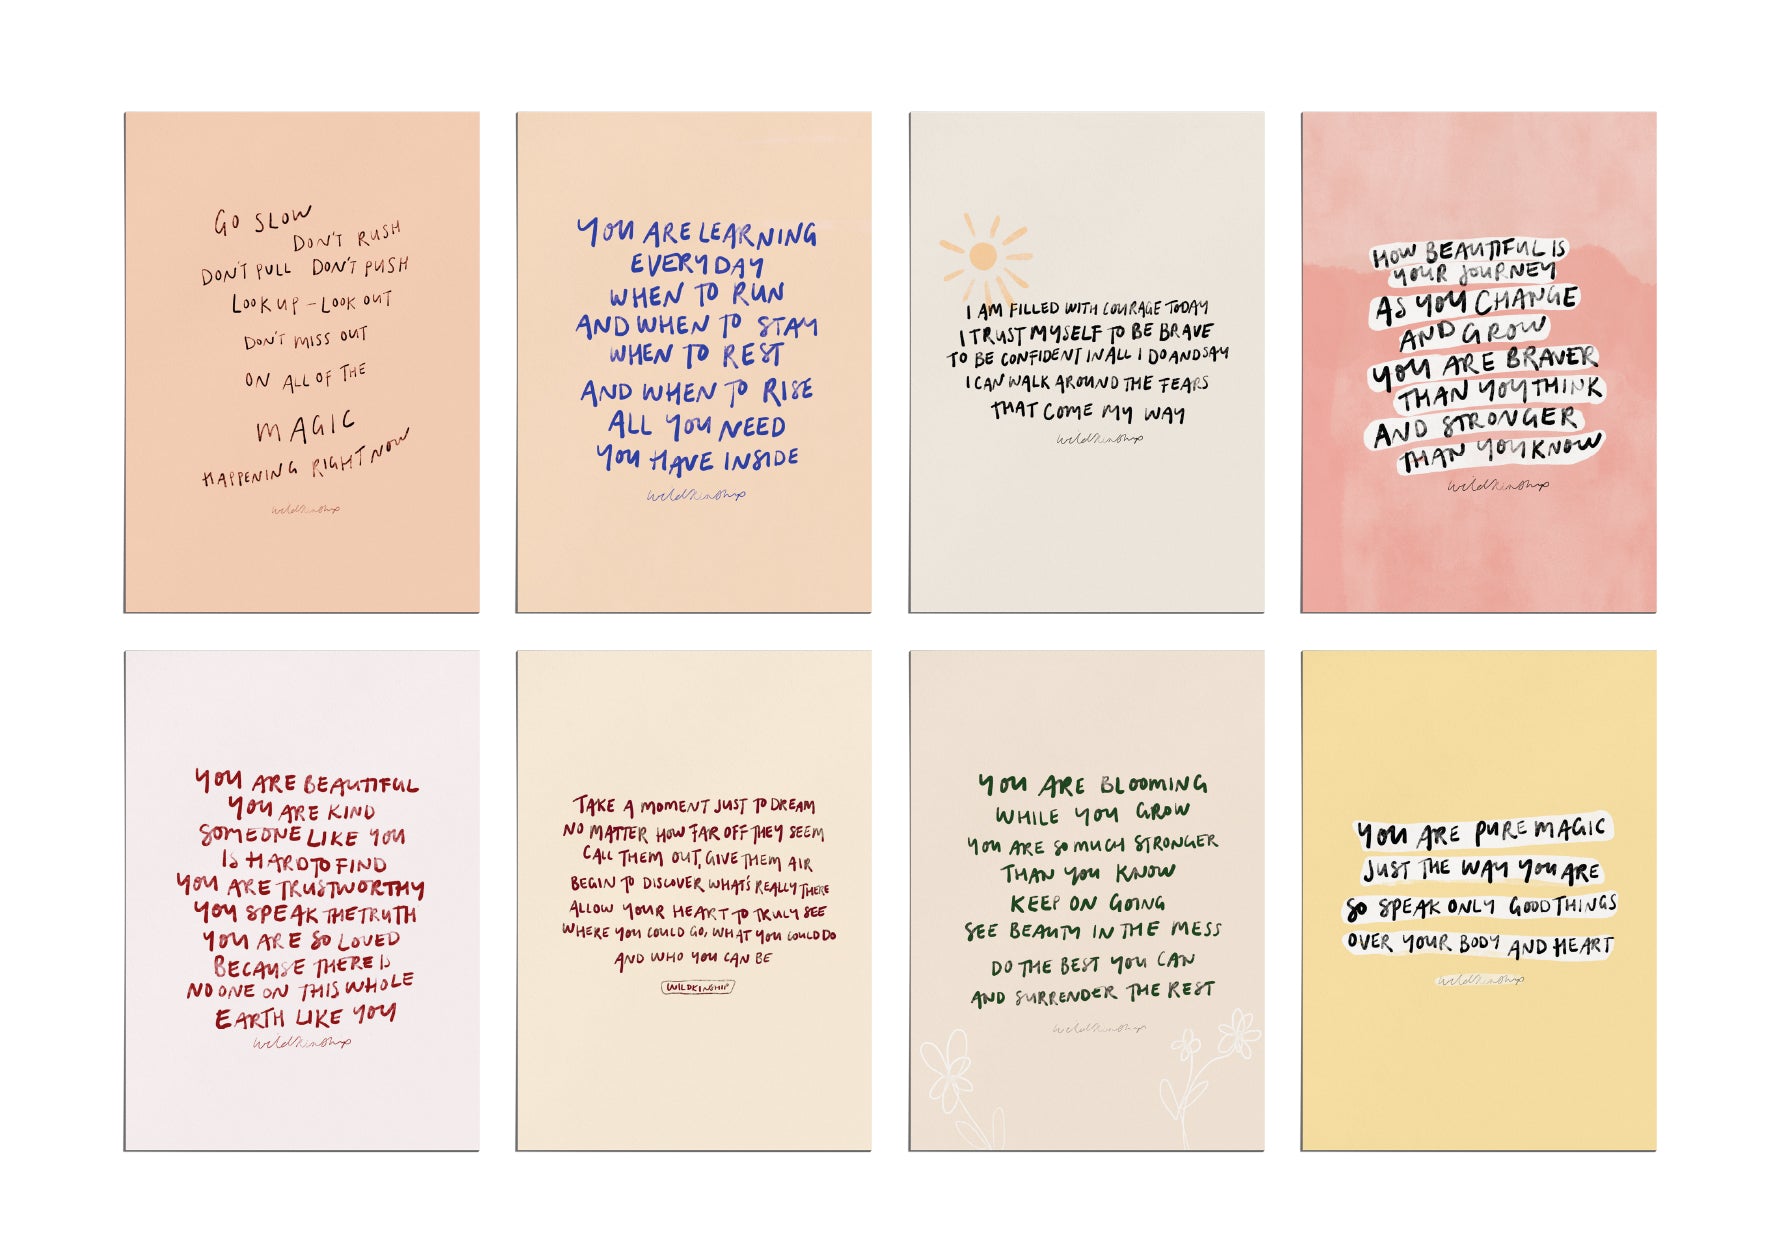 GO SLOW
DON'T RUSH
DON'T PULL DON'T PUSH
LOOK UP - LOOK OUT
DON'T MISS OUT
ON ALL OF THE
MAGIC
HAPPENING RIGHT NOW
wildkinship
YOU ARE LEARNING
EVERYDAY
WHEN TO RUN
AND WHEN TO STAY
WHEN TO REST
AND WHEN TO RISE
ALL YOU NEED
YOU HAVE INSIDE
wildkinship
I AM FILLED WITH COURAGE TODAY
I TRUST MYSELF TO BE BRAVE
TO BE CONFIDENT IN ALL I DO AND SAY
I CAN WALK AROUND THE FEARS
THAT COME MY WAY
wildkinship
HOW BEAUTIFUL IS
YOUR JOURNEY
AS YOU CHANGE
AND GROW
YOU ARE BRAVER
THAN YOU THINK
AND STRONGER
THAN YOU KNOW
wildkinship
YOU ARE BEAUTIFUL
YOU ARE KIND
SOMEONE LIKE YOU
IS HARD TO FIND
YOU ARE TRUSTWORTHY
YOU SPEAK THE TRUTH
YOU ARE SO LOVED
BECAUSE THERE IS
NO ONE ON THIS WHOLE
EARTH LIKE YOU
wildkinship
TAKE A MOMENT JUST TO DREAM
NO MATTER HOW FAR OFF THEY SEEM
CALL THEM OUT, GIVE THEM AIR
BEGIN TO DISCOVER WHAT'S REALLY THERE
ALLOW YOUR HEART TO TRULY SEE
WHERE YOU COULD GO, WHAT YOU COULD DO
AND WHO YOU CAN BE
WILDKINSHIP
YOU ARE BLOOMING
WHILE YOU GROW
YOU ARE SO MUCH STRONGER
THAN YOU KNOW
KEEP ON GOING
SEE BEAUTY IN THE MESS
DO THE BEST YOU CAN
AND SURRENDER THE REST
wildkinship
YOU ARE PURE MAGIC
JUST THE WAY YOU ARE
SO SPEAK ONLY GOOD THINGS
OVER YOUR BODY AND HEART
wildkinship